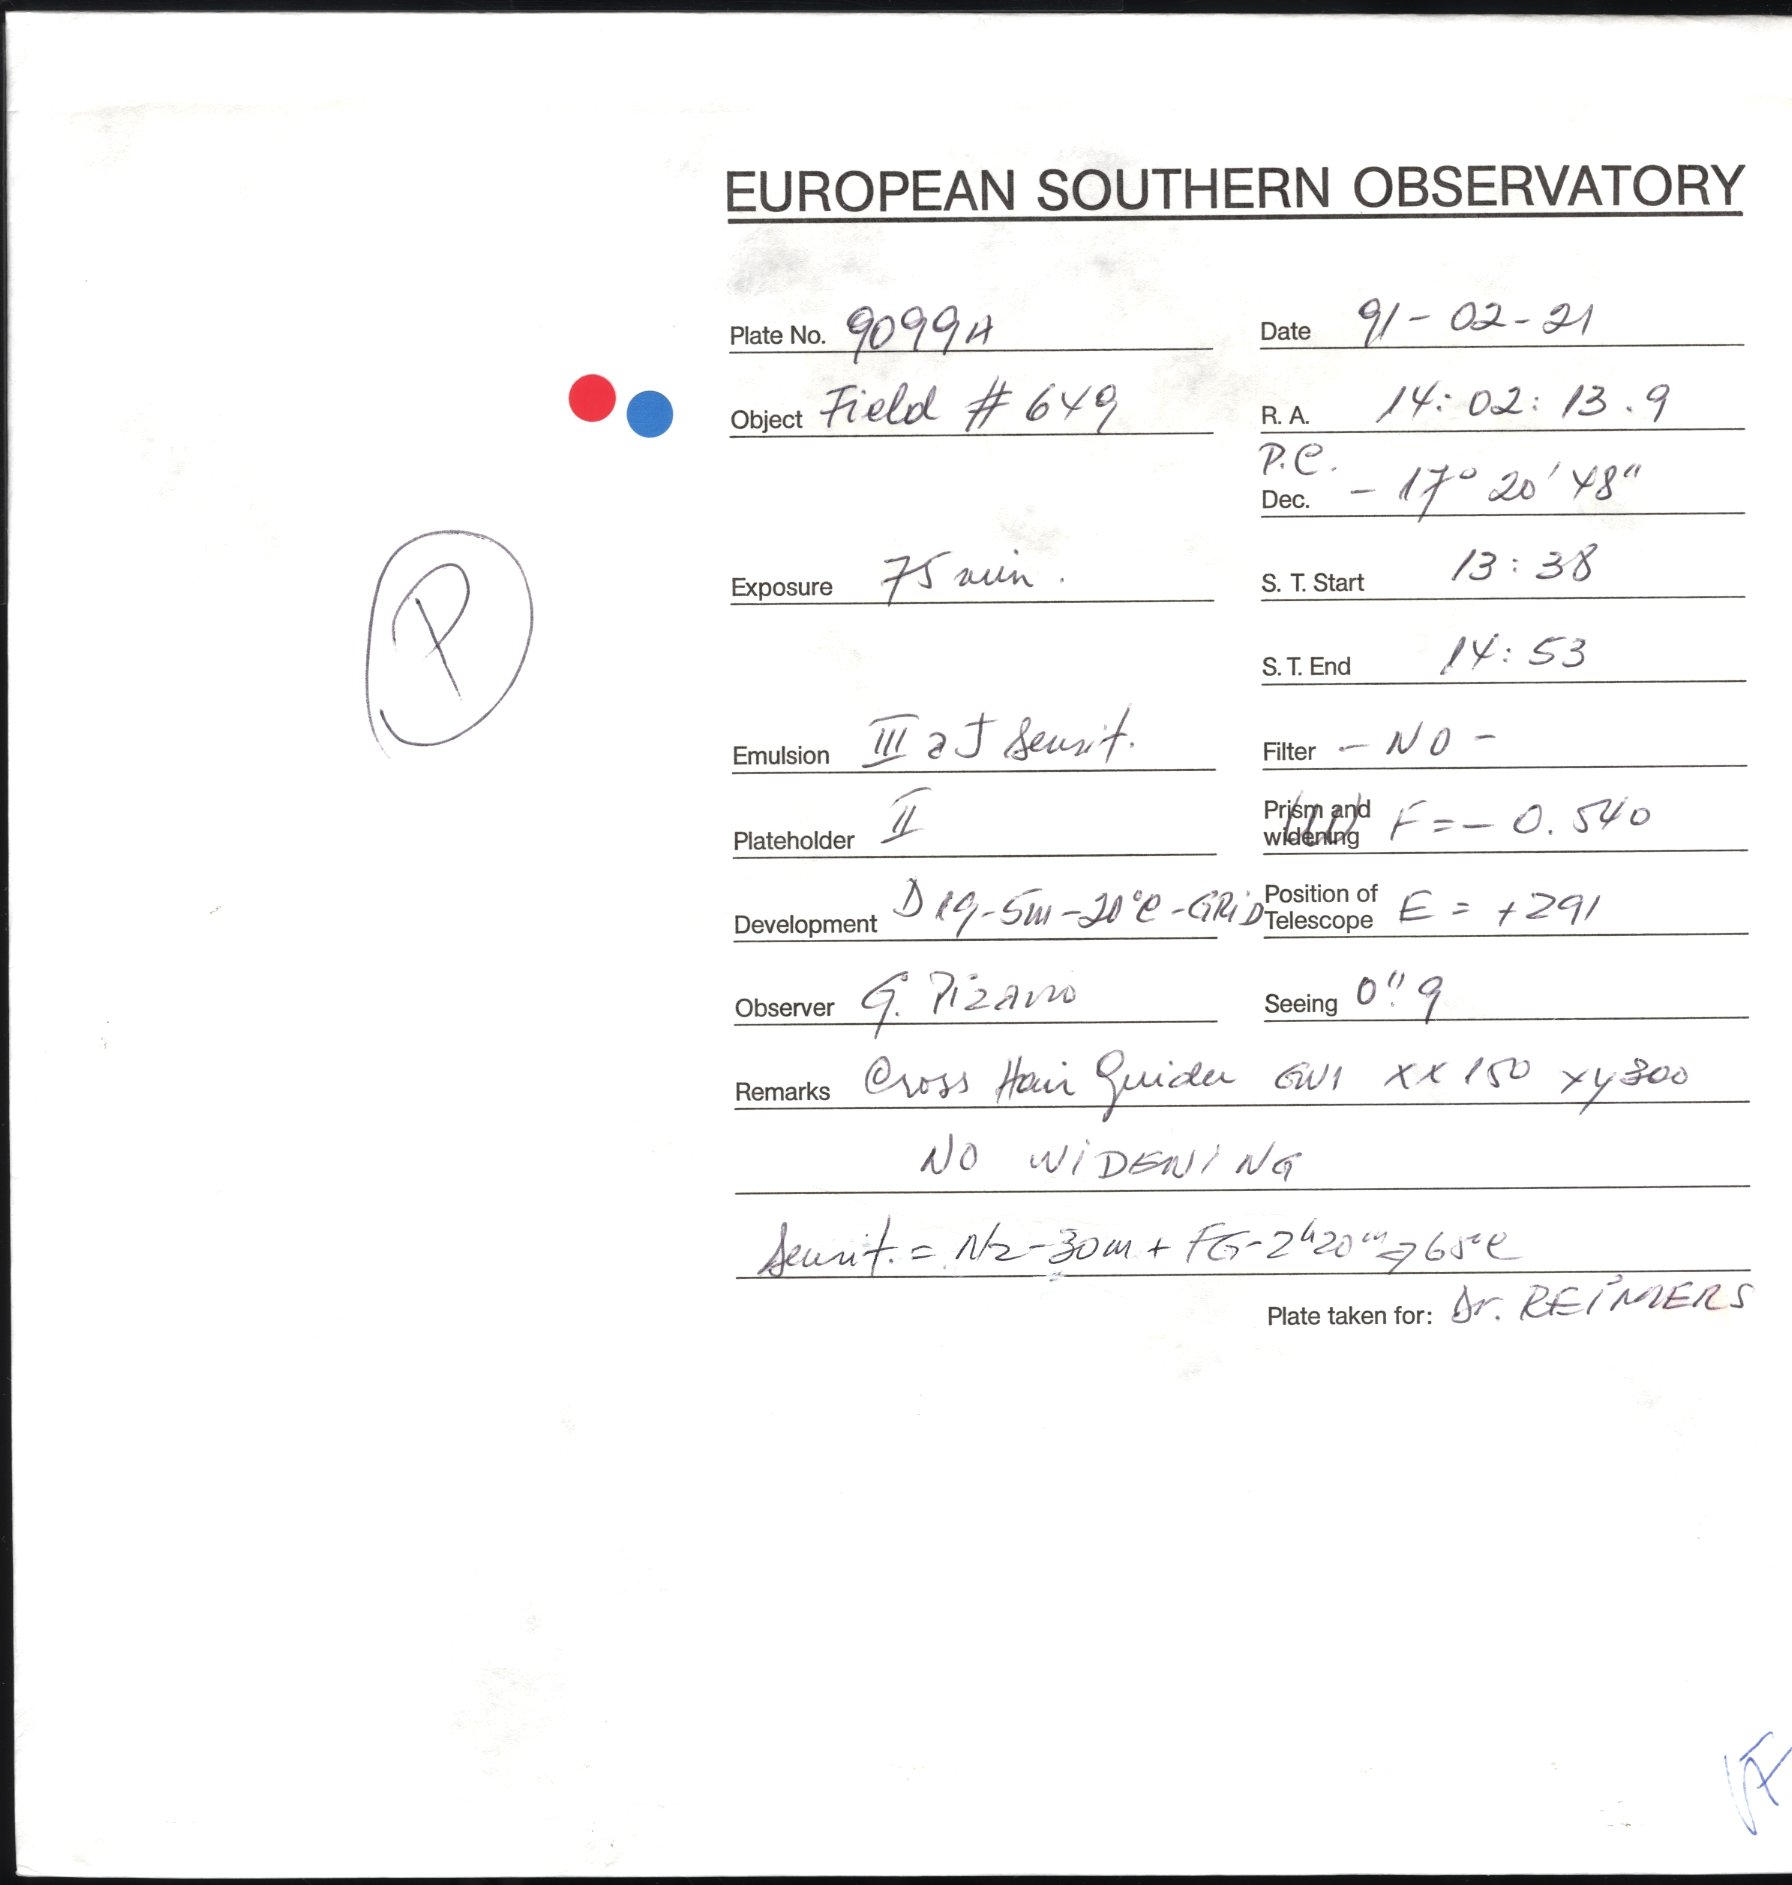 EUROPEAN SOUTHERN OBSERVATORY
Plate No. 9099A Date 91-02-21
Object Field # 649 R. A. 14: 02: 13.9
P.C.
Dec. - 17° 20' 48"
Exposure 75 min. S. T. Start 13:38
P
S. T. End 14:53
Emulsion III a J Sensit. Filter - NO -
Plateholder II Prism and widening F = - 0.540
Development D19-5m-20°C-GRiD Position of Telescope E = +291
Observer G. Pizarro Seeing 0".9
Remarks Cross Hair Guider GW1 XX 150 XY 300
NO WiDENiNG
Sensit. = N2-30m + FG-2h20m⇒65°C
Plate taken for: Dr. REiMERS